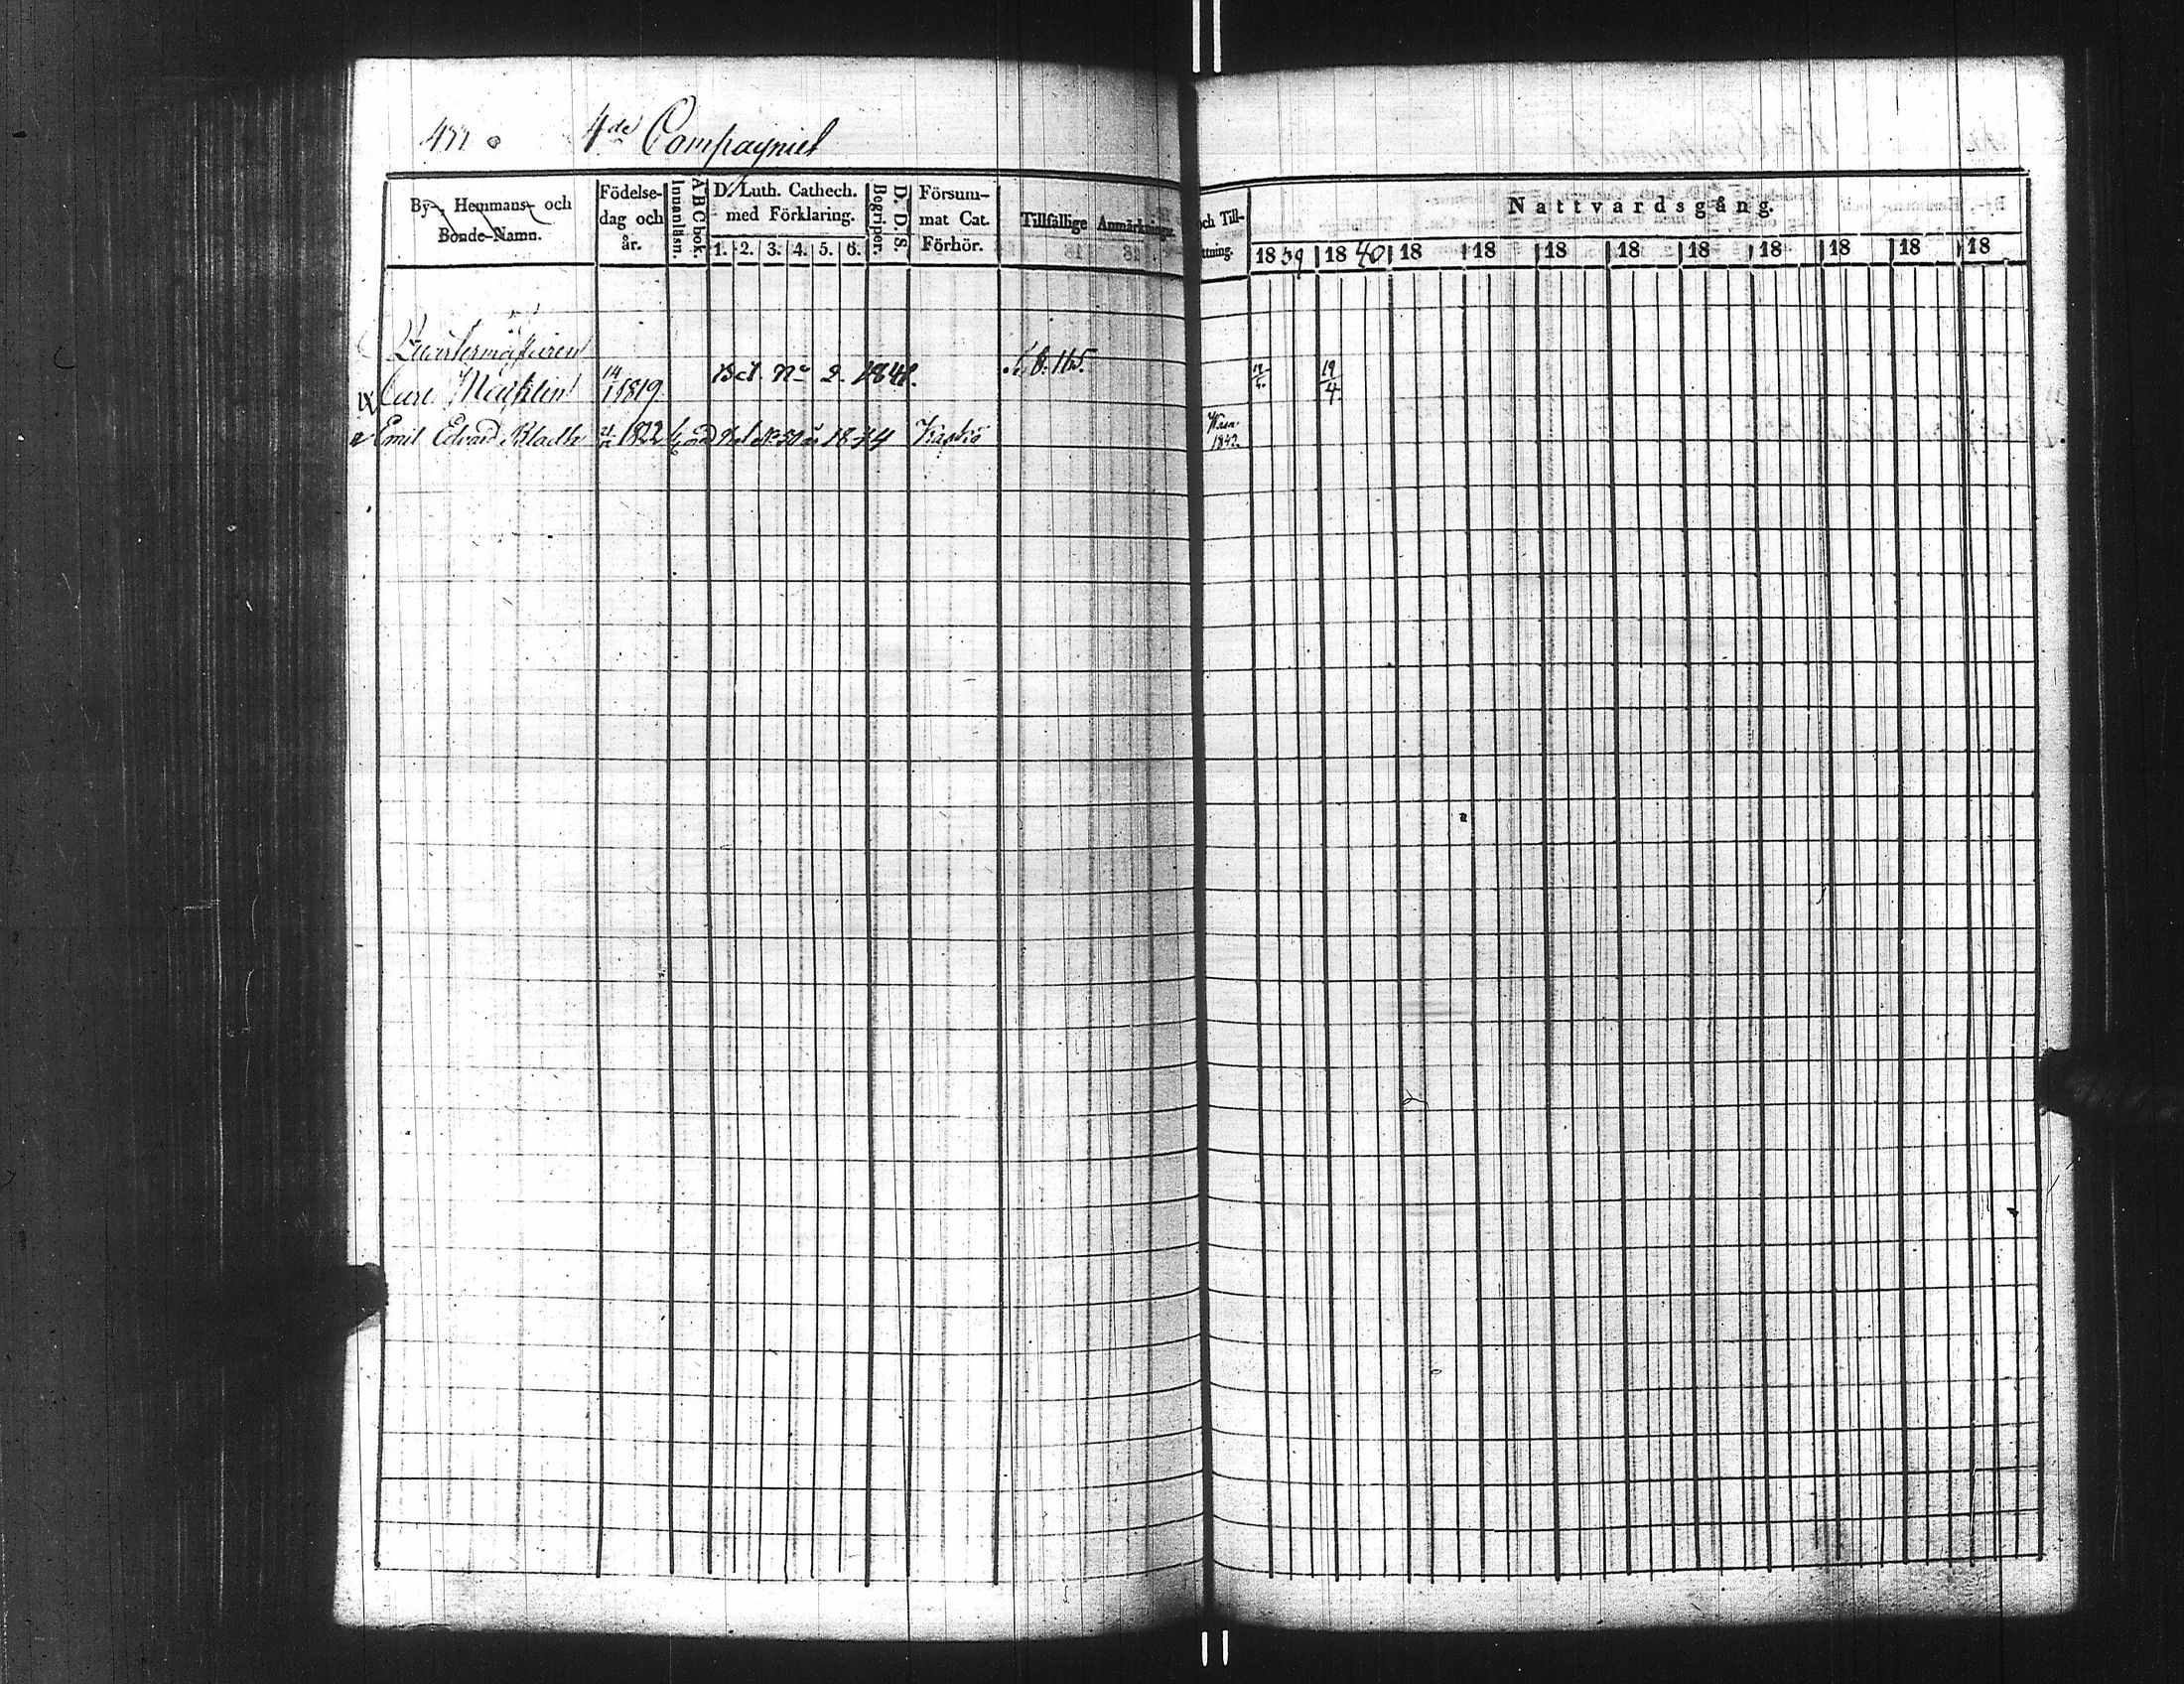 4de Compagniet
By-, Hemmans- och Bonde-Namn.
Födelse-dag och år.
Innanläsn.
A B C bok.
D. Luth. Cathech. med Förklaring.
1. 2. 3. 4. 5. 6.
Begriper.
D. D. S.
Försum-mat Cat. Förhör.
Tillfällige Anmärkningar
och Till-
ttning.
Nattvardsgång.
1839 1840 18 18 18 18 18 18 18 18 18
Quartermästaren
Carl 14/1 1819 Bet. No 2. 1841. 19/4
Emil Edvard 1822 Kaskö Wasa
1842.